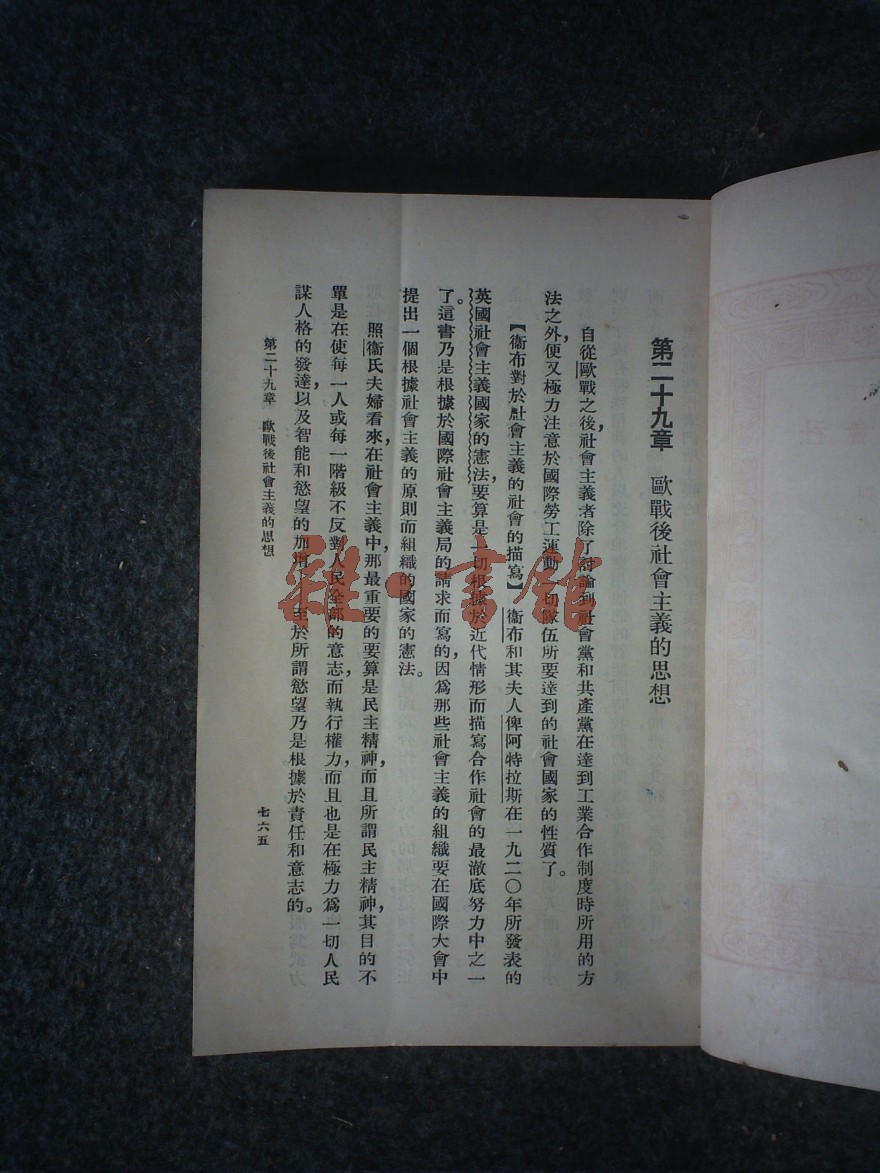 第二十九章 歐戰後社會主義的思想
自從歐戰之後，社會主義者除了討論到社會黨和共產黨在達到工業合作制度時所用的方
法之外，便又極力注意於國際勞工運動一切隊伍所要達到的社會國家的性質了。
【衞布對於社會主義的社會的描寫】衞布和其夫人俾阿特拉斯在一九二〇年所發表的
英國社會主義國家的憲法，要算是一切根據於近代情形而描寫合作社會的最澈底努力中之一
了。這書乃是根據於國際社會主義局的請求而寫的，因爲那些社會主義的組織要在國際大會中
提出一個根據社會主義的原則而組織的國家的憲法。
照衞氏夫婦看來，在社會主義中，那最重要的要算是民主精神，而且所謂民主精神，其目的不
單是在使每一人或每一階級不反對人民全部的意志，而執行權力，而且也是在極力爲一切人民
謀人格的發達，以及智能和慾望的加增 至於所謂慾望乃是根據於責任和意志的。
第二十九章 歐戰後社會主義的思想
七六五
雜·書館